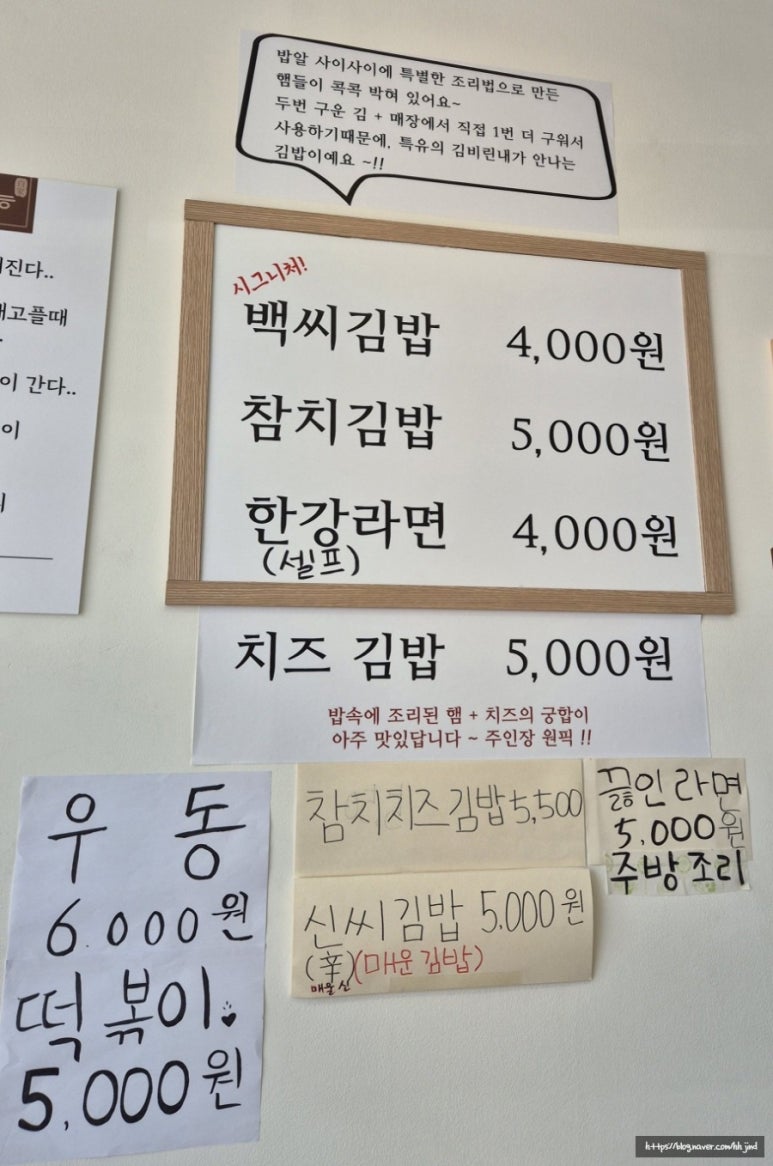 밥알 사이사이에 특별한 조리법으로 만든
햄들이 콕콕 박혀 있어요~
두번 구운 김 + 매장에서 직접 1번 더 구워서
사용하기때문에, 특유의 김비린내가 안나는
김밥이예요 ~!!
시그니처!
백씨김밥 4,000원
참치김밥 5,000원
한강라면 4,000원
(셀프)
치즈 김밥 5,000원
밥속에 조리된 햄 + 치즈의 궁합이
아주 맛있답니다 ~ 주인장 원픽 !!
참치치즈김밥 5,500
끓인라면
5,000원
주방조리
신씨김밥 5.000원
(辛)(매운김밥)
매울신
우동
6.000원
떡볶이
5,000원
진다..
고플때
이 간다..
이
https://blog.naver.com/hh jind